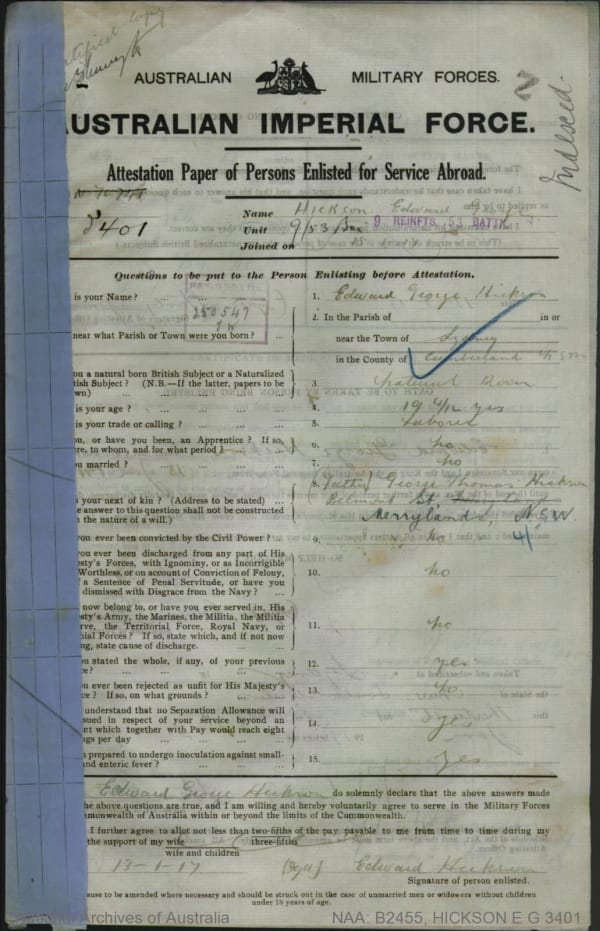 Certified Copy
AUSTRALIAN MILITARY FORCES.
2
Indexed.
AUSTRALIAN IMPERIAL FORCE.
Attestation Paper of Persons Enlisted for Service Abroad.
3401
Name Hickson Edward George
Unit 9/53 Bn 9 REINFTS. 53 BATTN
Joined on
Questions to be put to the Person Enlisting before Attestation.
is your Name? ... 1. Edward George Hickson
250547
2. In the Parish of in or
near what Parish or Town were you born? ... near the Town of Sydney
in the County of Cumberland NSW
ou a natural born British Subject or a Naturalized
tish Subject? (N.B.—If the latter, papers to be
wn) 3. Natural Born
is your age? 4. 19 yrs
is your trade or calling? 5. Laborer
ou, or have you been, an Apprentice? If so,
ere, to whom, and for what period? 6. no
ou married? 7. no
8. (Father) George Thomas Hickson
s your next of kin? (Address to be stated) ...
e answer to this question shall not be constructed
n the nature of a will.) Merrylands, N.S.W.
you ever been convicted by the Civil Power? ... 9. No
ou ever been discharged from any part of His
esty's Forces, with Ignominy, or as Incorrigible
Worthless, or on account of Conviction of Felony,
a Sentence of Penal Servitude, or have you
dismissed with Disgrace from the Navy? ... 10. no
now belong to, or have you ever served in, His
sty's Army, the Marines, the Militia, the Militia
rve, the Territorial Force, Royal Navy, or
nial Forces? If so, state which, and if not now
ng, state cause of discharge. 11. no
u stated the whole, if any, of your previous
ce? 12. yes
u ever been rejected as unfit for His Majesty's
ce? If so, on what grounds? 13. no
understand that no Separation Allowance will
sued in respect of your service beyond an
nt which together with Pay would reach eight
ngs per day 14. yes
prepared to undergo inoculation against small-
and enteric fever? 15. Yes
Edward George Hickson do solemnly declare that the above answers made
he above questions are true, and I am willing and hereby voluntarily agree to serve in the Military Forces
mmonwealth of Australia within or beyond the limits of the Commonwealth.
I further agree to allot not less than two-fifths of the pay payable to me from time to time during my
the support of my wife three-fifths
wife and children
13-1-17 (Sgd) Edward Hickson
Signature of person enlisted.
ause to be amended where necessary and should be struck out in the case of unmarried men or widowers without children
under 18 years of age.
Archives of Australia NAA: B2455, HICKSON E G 3401